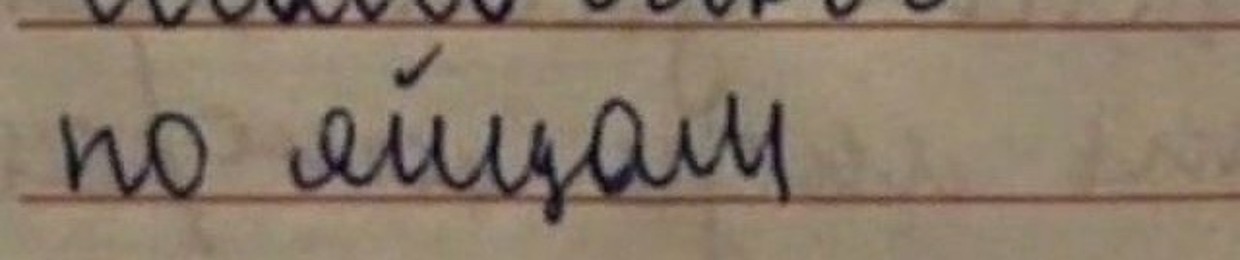 по яйцам